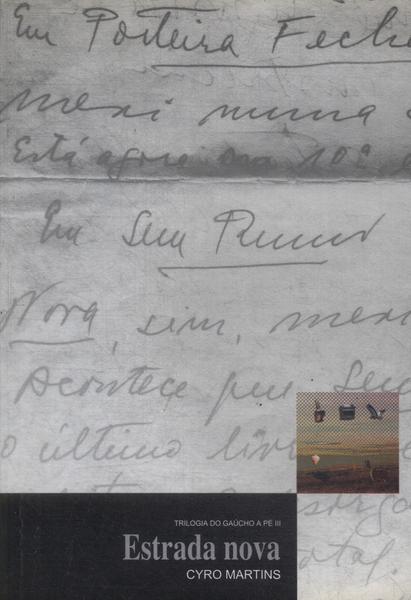 Em Porteira Fech
mexi numa
Está agora na 10ª
Em Sem Rumo
Nova, sim, mexi
Acontece que Sem
o último liv
TRILOGIA DO GAÚCHO A PE III
Estrada nova
CYRO MARTINS